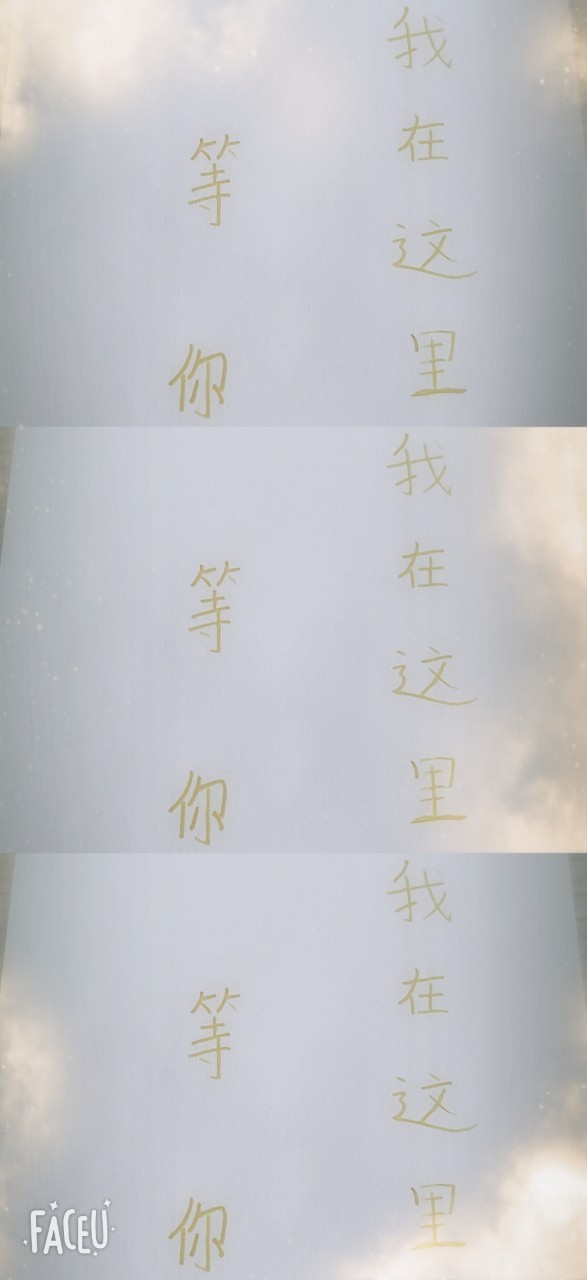 我在这里
等你
我在这里
等你
我在这里
等你
FACEU